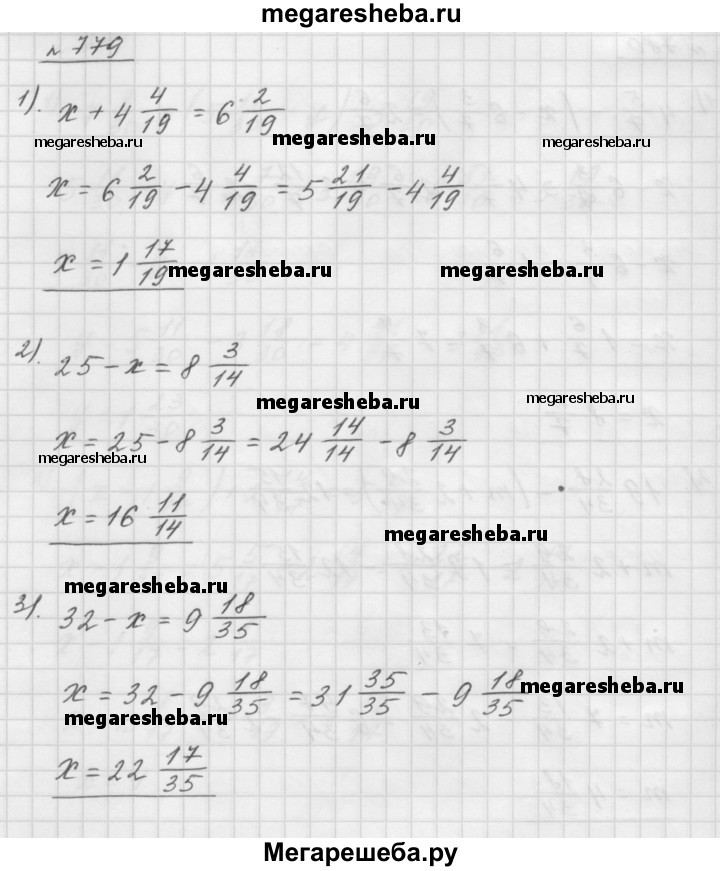 megaresheba.ru
№ 779
1). x + 4 4/19 = 6 2/19
megaresheba.ru megaresheba.ru megaresheba.ru
x = 6 2/19 - 4 4/19 = 5 21/19 - 4 4/19
x = 1 17/19
megaresheba.ru megaresheba.ru
2). 25 - x = 8 3/14
megaresheba.ru megaresheba.ru
x = 25 - 8 3/14 = 24 14/14 - 8 3/14
megaresheba.ru
x = 16 11/14
megaresheba.ru
megaresheba.ru
3). 32 - x = 9 18/35
x = 32 - 9 18/35 = 31 35/35 - 9 18/35
megaresheba.ru
megaresheba.ru megaresheba.ru
x = 22 17/35
Мегарешеба.ру